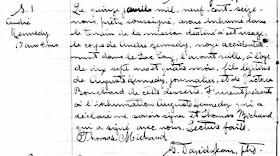 S. 1
André
Kennedy
17 ans 4 mois
Le quinze mil neuf cent seize
nous, prêtre soussigné, avons inhumé dans
le terrain de la mission destiné à cet usage
le corps de André Kennedy, noyé accidentel-
ment dans le Lac Long, l'avant veille, à l'âge
de dix sept ans et quatre mois, fils légitime
de Auguste Kennedy, journalier, et de
Bouchard de cette desserte. Furent présents
à l'inhumation Auguste Kennedy qui a
déclaré ne savoir signer et Thomas Michaud
qui a signé avec nous. Lecture faite.
Thomas Michaud
ptre.